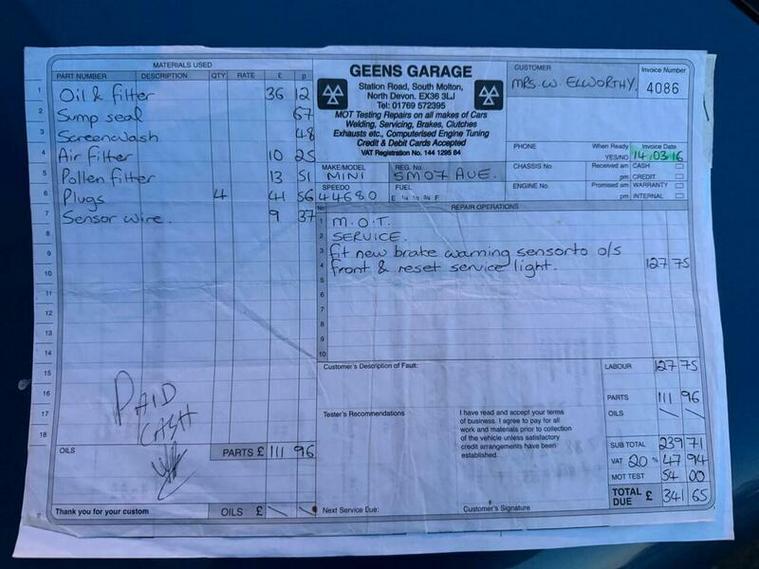 MATERIALS USED
PART NUMBER DESCRIPTION QTY RATE £ p
1 Oil & filter 36 12
2 Sump seal 67
3 Screenwash 48
4 Air filter 10 25
5 Pollen filter 13 51
6 Plugs 4 41 56
7 Sensor wire. 9 37
8
9
10
11
12
13
14
15
16
17
18
PAID
CASH
OILS PARTS £ 111 96
Thank you for your custom OILS £
GEENS GARAGE
Station Road, South Molton,
North Devon. EX36 3LJ
Tel: 01769 572395
MOT Testing Repairs on all makes of Cars
Welding, Servicing, Brakes, Clutches
Exhausts etc., Computerised Engine Tuning
Credit & Debit Cards Accepted
VAT Registration No. 144 1295 64
CUSTOMER
MRS. W. ELWORTHY.
Invoice Number
4086
PHONE When Ready Invoice Date
YES/NO 14.03.16
MAKE/MODEL REG. No. CHASSIS No. Received am CASH
MINI SM07 AUE. pm CREDIT
SPEEDO FUEL ENGINE No. Promised am WARRANTY
44680 E ¼ ½ ¾ F pm INTERNAL
REPAIR OPERATIONS
1 M.O.T.
2 SERVICE.
3 fit new brake warning sensor to o/s
4 front & reset service light. 127 75
5
6
7
8
9
10
Customer's Description of Fault:
LABOUR 127 75
PARTS 111 96
OILS
Tester's Recommendations
I have read and accept your terms
of business. I agree to pay for all
work and materials prior to collection
of the vehicle unless satisfactory
credit arrangements have been
established.
SUB TOTAL 239 71
VAT 20 % 47 94
MOT TEST 54 00
TOTAL DUE £ 341 65
Next Service Due: Customer's Signature